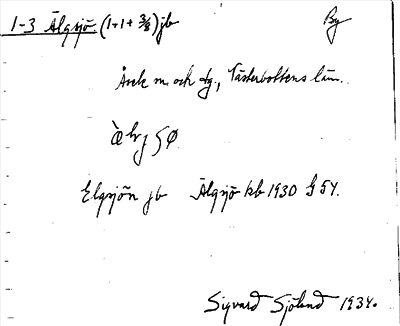 1-3 Älgsjö. (1+1+3/8) jb By
Åsele m. och tg., Västerbottens län.
Elgsjön jb Älgsjö kb 1930 G 54.
Sigvard Sjölund 1934.